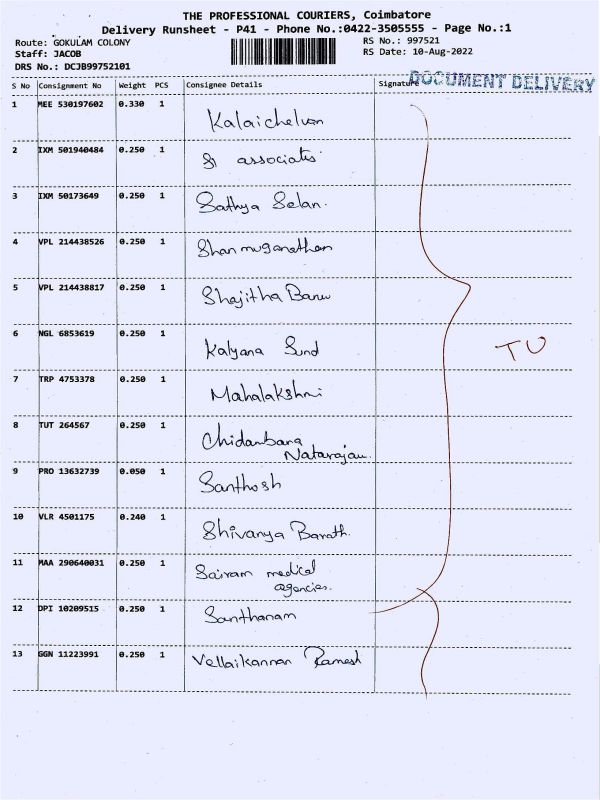 THE PROFESSIONAL COURIERS, Coimbatore
Delivery Runsheet - P41 - Phone No.:0422-3505555 - Page No.:1
Route: GOKULAM COLONY
RS No.: 997521
Staff: JACOB
RS Date: 10-Aug-2022
DRS No.: DCJB99752101
S No Consignment No Weight PCS Consignee Details Signature
DOCUMENT DELIVERY
1 MEE 530197602 0.330 1 Kalaichelvan
2 IXM 501940484 0.250 1 associates
3 IXM 50173649 0.250 1 Sathya Selan.
4 VPL 214438526 0.250 1 Shanmuganathan
5 VPL 214438817 0.250 1 Shajitha Banu
6 NGL 6853619 0.250 1 Kalyana Sund
TU
7 TRP 4753378 0.250 1 Mahalakshmi
8 TUT 264567 0.250 1 Chidambara
Natarajan.
9 PRO 13632739 0.050 1 Santhosh
10 VLR 4501175 0.240 1 Shivanya Barath.
11 MAA 290640031 0.250 1 Sairam medical
agencies.
12 DPI 10209515 0.250 1 Santhanam
13 GGN 11223991 0.250 1 Vellaikannan Ramesh